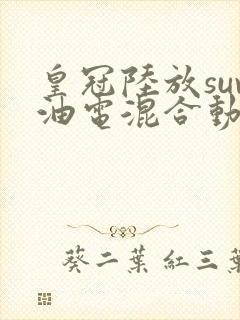 皇冠陸放su
油電混合動
葵二葉 紅三葉